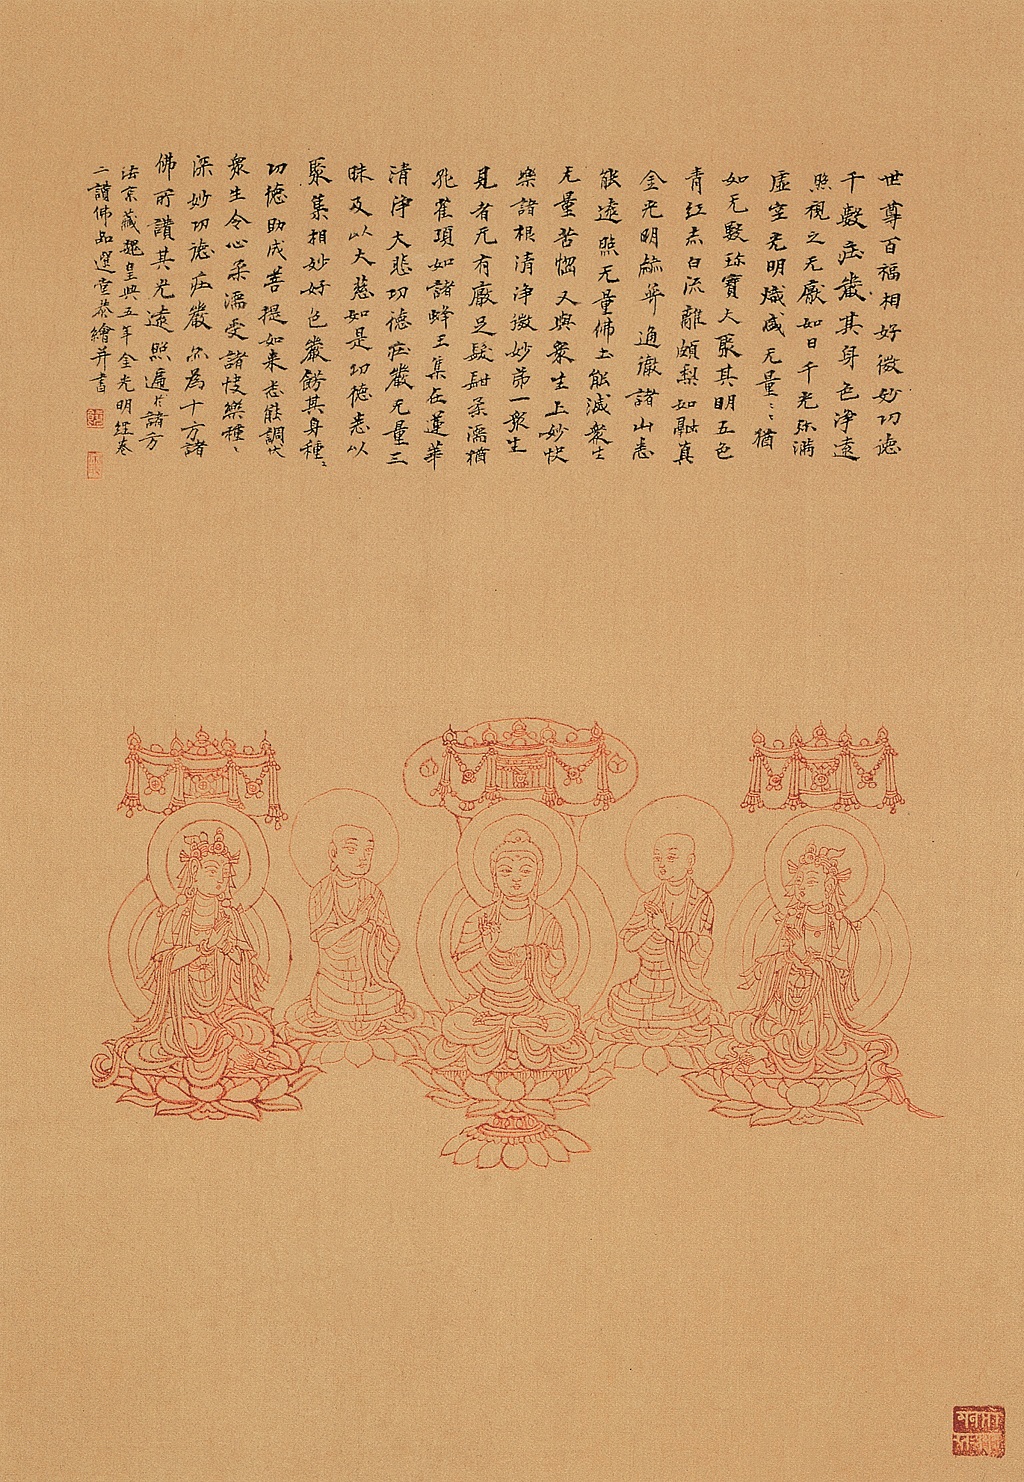 世尊百福相好微妙功德
千數莊嚴其身色淨遠
照視之无厭如日千光弥滿
虛空光明熾盛无量〻猶
如无數珎寶大聚其明五色
青红赤白流離頗梨如融真
金光明赫弈通徹諸山悉
能遠照无量佛土能滅衆生
无量苦惱又與衆生上妙快
樂諸根清淨微妙第一衆生
見者无有厭足髮紺柔濡猶
孔雀項如諸蜂王集在蓮華
清淨大悲功德莊嚴无量三
昧及以大慈如是功德悉以
聚集相妙好色嚴餝其身種〻
功德助成菩提如来悉能調伏
衆生令心柔濡受諸快樂種〻
深妙功德莊嚴亦為十方諸
佛所讚其光遠照遍於諸方
法京藏魏皇興五年金光明經卷
二讚佛品選堂恭繪并書